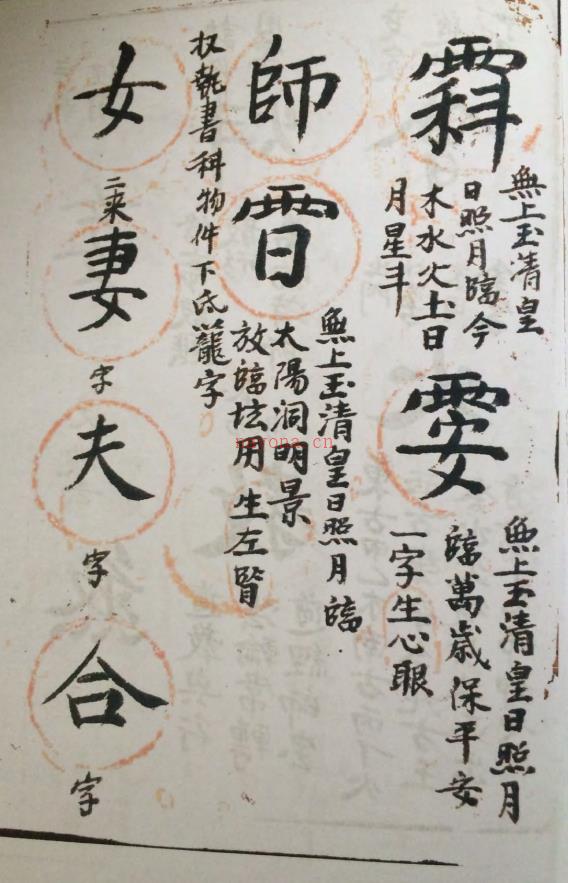 無上玉清皇
日照月臨今
木水火土日
月星斗
無上玉清皇日照月
臨萬歲保平安
一字生心眼
師
無上玉清皇日照月臨
太陽洞明景
放臨坛用生左
執書科物件下氐籠字
女
二来
妻
字
夫
字
合
字